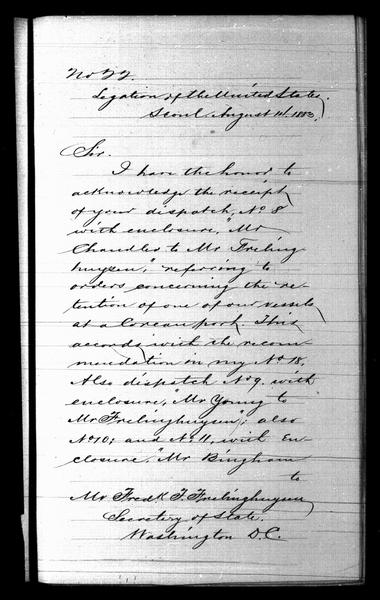 No 22.
Legation of the United States
Seoul August 14. 1883.
Sir.
I have the honor to
acknowledge the receipt
of your dispatch, No 8
with enclosure, "Mr
Chandler to Mr Freling
huysen," referring to
orders concerning the re-
tention of one of our vessels
at a Corean port. This
accords with the recom-
mendation in my No 18.
Also dispatch No 9. with
enclosure, "Mr Young to
Mr Frelinghuysen"; also
No 10; and No 11, with En-
closure, "Mr Bingham
to
Mr Fredk T. Frelinghuysen
Secretary of State.
Washington D.C.